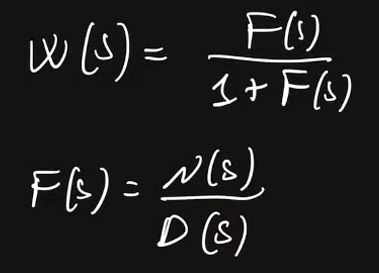 W(s) = F(s) / 1 + F(s)
F(s) = N(s) / D(s)